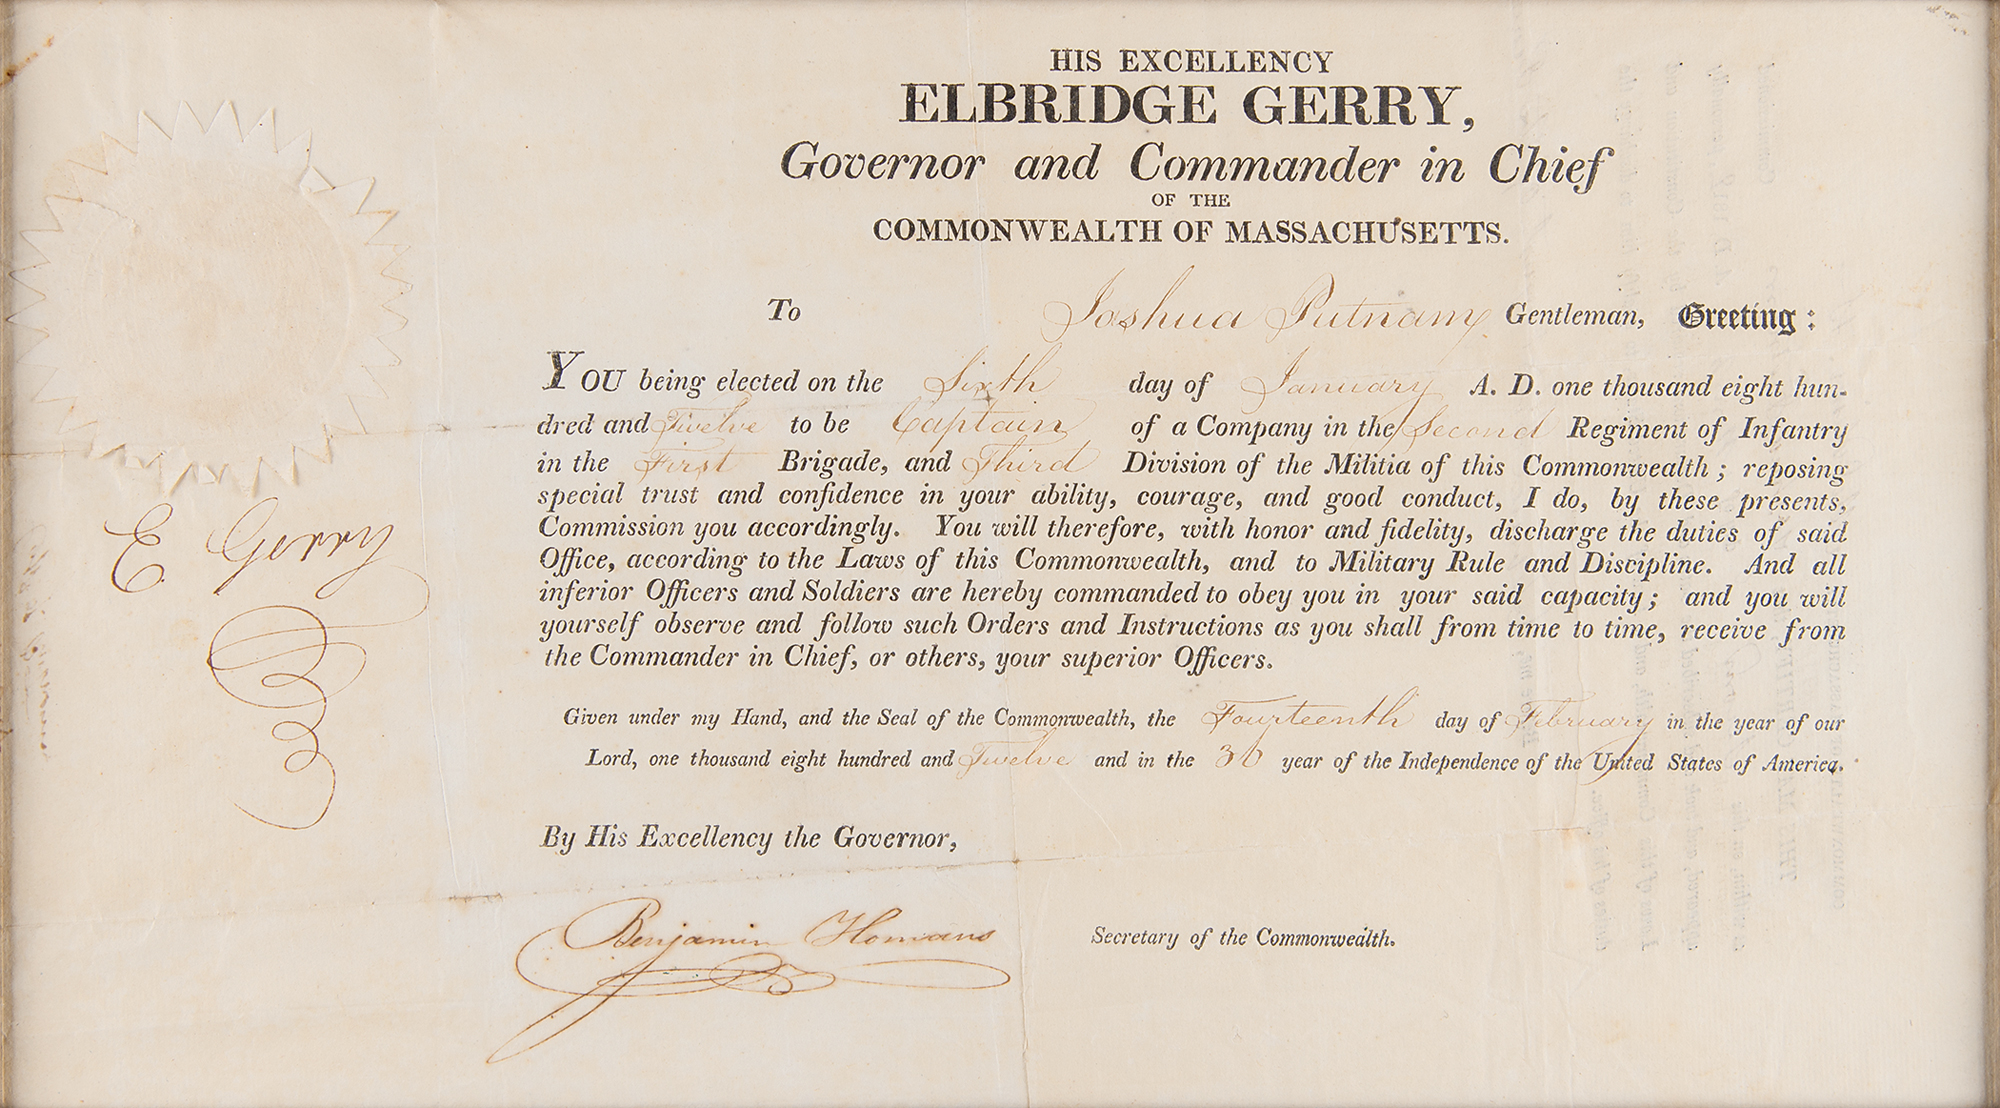 HIS EXCELLENCY
ELBRIDGE GERRY,
Governor and Commander in Chief
OF THE
COMMONWEALTH OF MASSACHUSETTS.
To Joshua Putnam Gentleman, Greeting:
YOU being elected on the Sixth day of January A. D. one thousand eight hun-
dred and Twelve to be Captain of a Company in the Second Regiment of Infantry
in the First Brigade, and Third Division of the Militia of this Commonwealth; reposing
special trust and confidence in your ability, courage, and good conduct, I do, by these presents,
Commission you accordingly. You will therefore, with honor and fidelity, discharge the duties of said
Office, according to the Laws of this Commonwealth, and to Military Rule and Discipline. And all
inferior Officers and Soldiers are hereby commanded to obey you in your said capacity; and you will
yourself observe and follow such Orders and Instructions as you shall from time to time, receive from
the Commander in Chief, or others, your superior Officers.
Given under my Hand, and the Seal of the Commonwealth, the Fourteenth day of February in the year of our
Lord, one thousand eight hundred and Twelve and in the 36 year of the Independence of the United States of America.
E Gerry
By His Excellency the Governor,
Benjamin Homans Secretary of the Commonwealth.